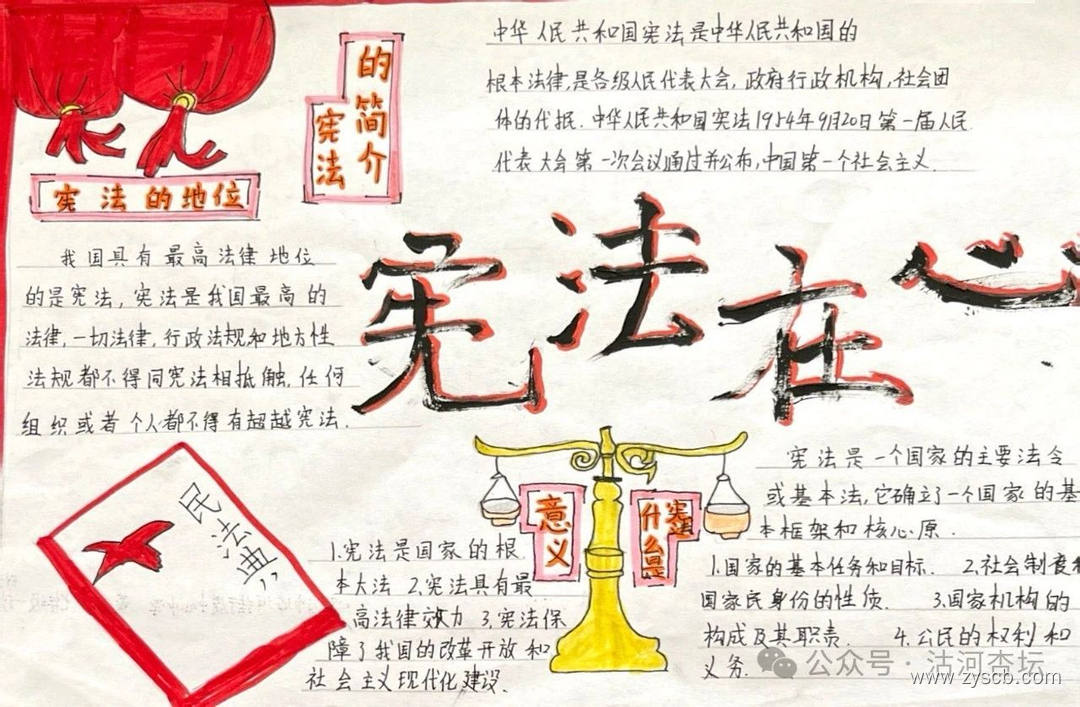 宪法的简介
中华人民共和国宪法是中华人民共和国的
根本法律,是各级人民代表大会,政府行政机构,社会团
体的代报.中华人民共和国宪法1954年9月20日第一届人民
代表大会第一次会议通过并公布,中国第一个社会主义.
宪法的地位
我国具有最高法律地位
的是宪法,宪法是我国最高的
法律,一切法律,行政法规和地方性
法规都不得同宪法相抵触,任何
组织或者个人都不得有超越宪法.
宪法在心
民法典
意义
1.宪法是国家的根
本大法 2.宪法具有最
高法律效力 3.宪法保
障了我国的改革开放和
社会主义现代化建设.
宪法什么是
宪法是一个国家的主要法令
或基本法,它确立了一个国家的基
本框架和核心原.
1.国家的基本任务和目标. 2.社会制度和
国家民身份的性质. 3.国家机构的
构成及其职责. 4.公民的权利和
义务.
公众号·沽河杏坛
www.zyscb.com